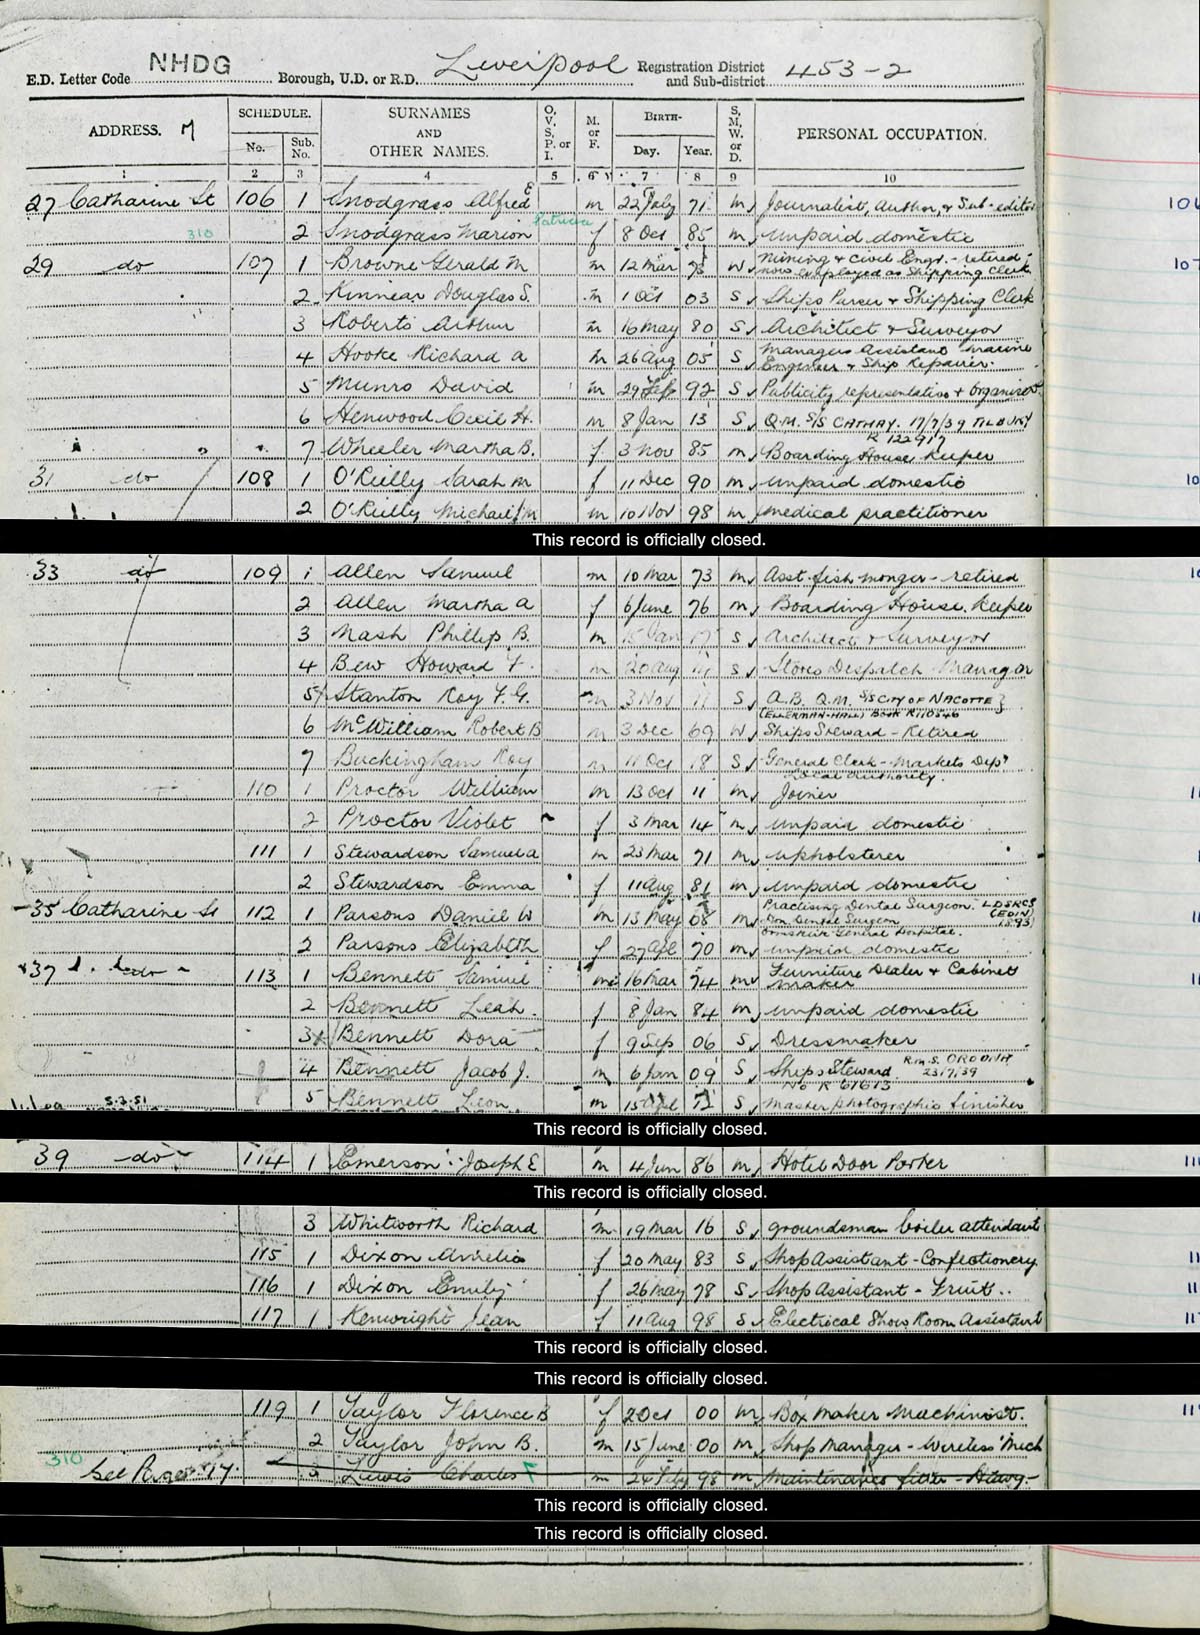 E.D. Letter Code NHDG Borough, U.D. or R.D. Liverpool Registration District and Sub-district 453-2
ADDRESS. SCHEDULE. No. Sub. No. SURNAMES AND OTHER NAMES. O, V, S, P, or I. M. or F. BIRTH- Day. Year. S, M, W, or D. PERSONAL OCCUPATION.
1 2 3 4 5 6 7 8 9 10
27 Catharine St 106 1 Snodgrass Alfred E m 22 July 71 m Journalist, Author, & Sub-editor
310 2 Snodgrass Marion Patricia f 8 Oct 85 m unpaid domestic
29 do 107 1 Browne Gerald M m 12 Mar W Mining & Civil Engr. - retired; now employed as Shipping Clerk
2 Kinnear Douglas S. m 1 Oct 03 S Ships Purser & Shipping Clerk
3 Roberts Arthur m 16 May 80 S Architect & Surveyor
4 Hooke Richard A m 26 Aug 05 S Managers Assistant Marine Engineer & Ship Repairer
5 Munro David m 29 Feb 92 S Publicity representative & Organiser
6 Henwood Cecil H. m 8 Jan 13 S Q.M. S/S CATHAY. 17/7/39 TILBURY
R 122917
7 Wheeler Martha B. f 3 Nov 85 m Boarding House Keeper
31 do 108 1 O'Reilly Sarah M f 11 Dec 90 m unpaid domestic
2 O'Reilly Michael m 10 Nov 98 m medical practitioner
This record is officially closed.
33 do 109 1 Allen Samuel m 10 Mar 73 m Asst. fishmonger - retired
2 Allen Martha A f 6 June 76 m Boarding House Keeper
3 Nash Phillip B. m 15 Jan S Architect & Surveyor
4 Bew Howard F. m 20 Aug S Stores Despatch Manager
5 Stanton Roy F. G. m 3 Nov 11 S A.B. Q.M. S/S CITY OF NAGOTTE
(ELLERMAN-HALL) BOOK R110546
6 McWilliam Robert B m 3 Dec 69 W Ships Steward - Retired
7 Buckingham Roy m 11 Oct 18 S General Clerk - Markets Dept
Local Authority.
110 1 Proctor William m 13 Oct 11 m Joiner
2 Proctor Violet f 3 Mar 14 m unpaid domestic
111 1 Stewardson Samuel A m 23 Mar 71 m upholsterer
2 Stewardson Emma f 11 Aug 81 m unpaid domestic
35 Catharine St 112 1 Parsons Daniel W m 13 May 68 m Practising Dental Surgeon. LDSRCS (EDIN) 1893
Hon. Dental Surgeon Ormskirk General Hospital.
2 Parsons Elizabeth f 27 Apl 70 m unpaid domestic
37 do 113 1 Bennett Samuel m 16 Mar 74 m Furniture Dealer & Cabinet maker
2 Bennett Leah f 8 Jan 84 m unpaid domestic
3 Bennett Dora f 9 Sep 06 S Dressmaker
4 Bennett Jacob J. m 6 Jan 09 S Ships Steward R.M.S. ORDUNA 23/7/39
No R 61613
5 Bennett Leon m 15 Apl S Master photographic finisher
5.3.51
This record is officially closed.
39 do 114 1 Emerson Joseph E m 4 Jun 86 m Hotel Door Porter
This record is officially closed.
3 Whitworth Richard m 19 Mar 16 S groundsman boiler attendant
115 1 Dixon Amelia f 20 May 83 S Shop Assistant - Confectionery
116 1 Dixon Emily f 26 May 78 S Shop Assistant - Fruit
117 1 Kenwright Jean f 11 Aug 98 S Electrical Show Room Assistant
This record is officially closed.
This record is officially closed.
119 1 Taylor Florence B f 2 Oct 00 m Box Maker Machinist.
2 Taylor John B. m 15 June 00 m Shop Manager - Wireless Mech
310 See Page 17. 3 Lewis Charles F m 24 98 m Maintenance fitter
This record is officially closed.
This record is officially closed.